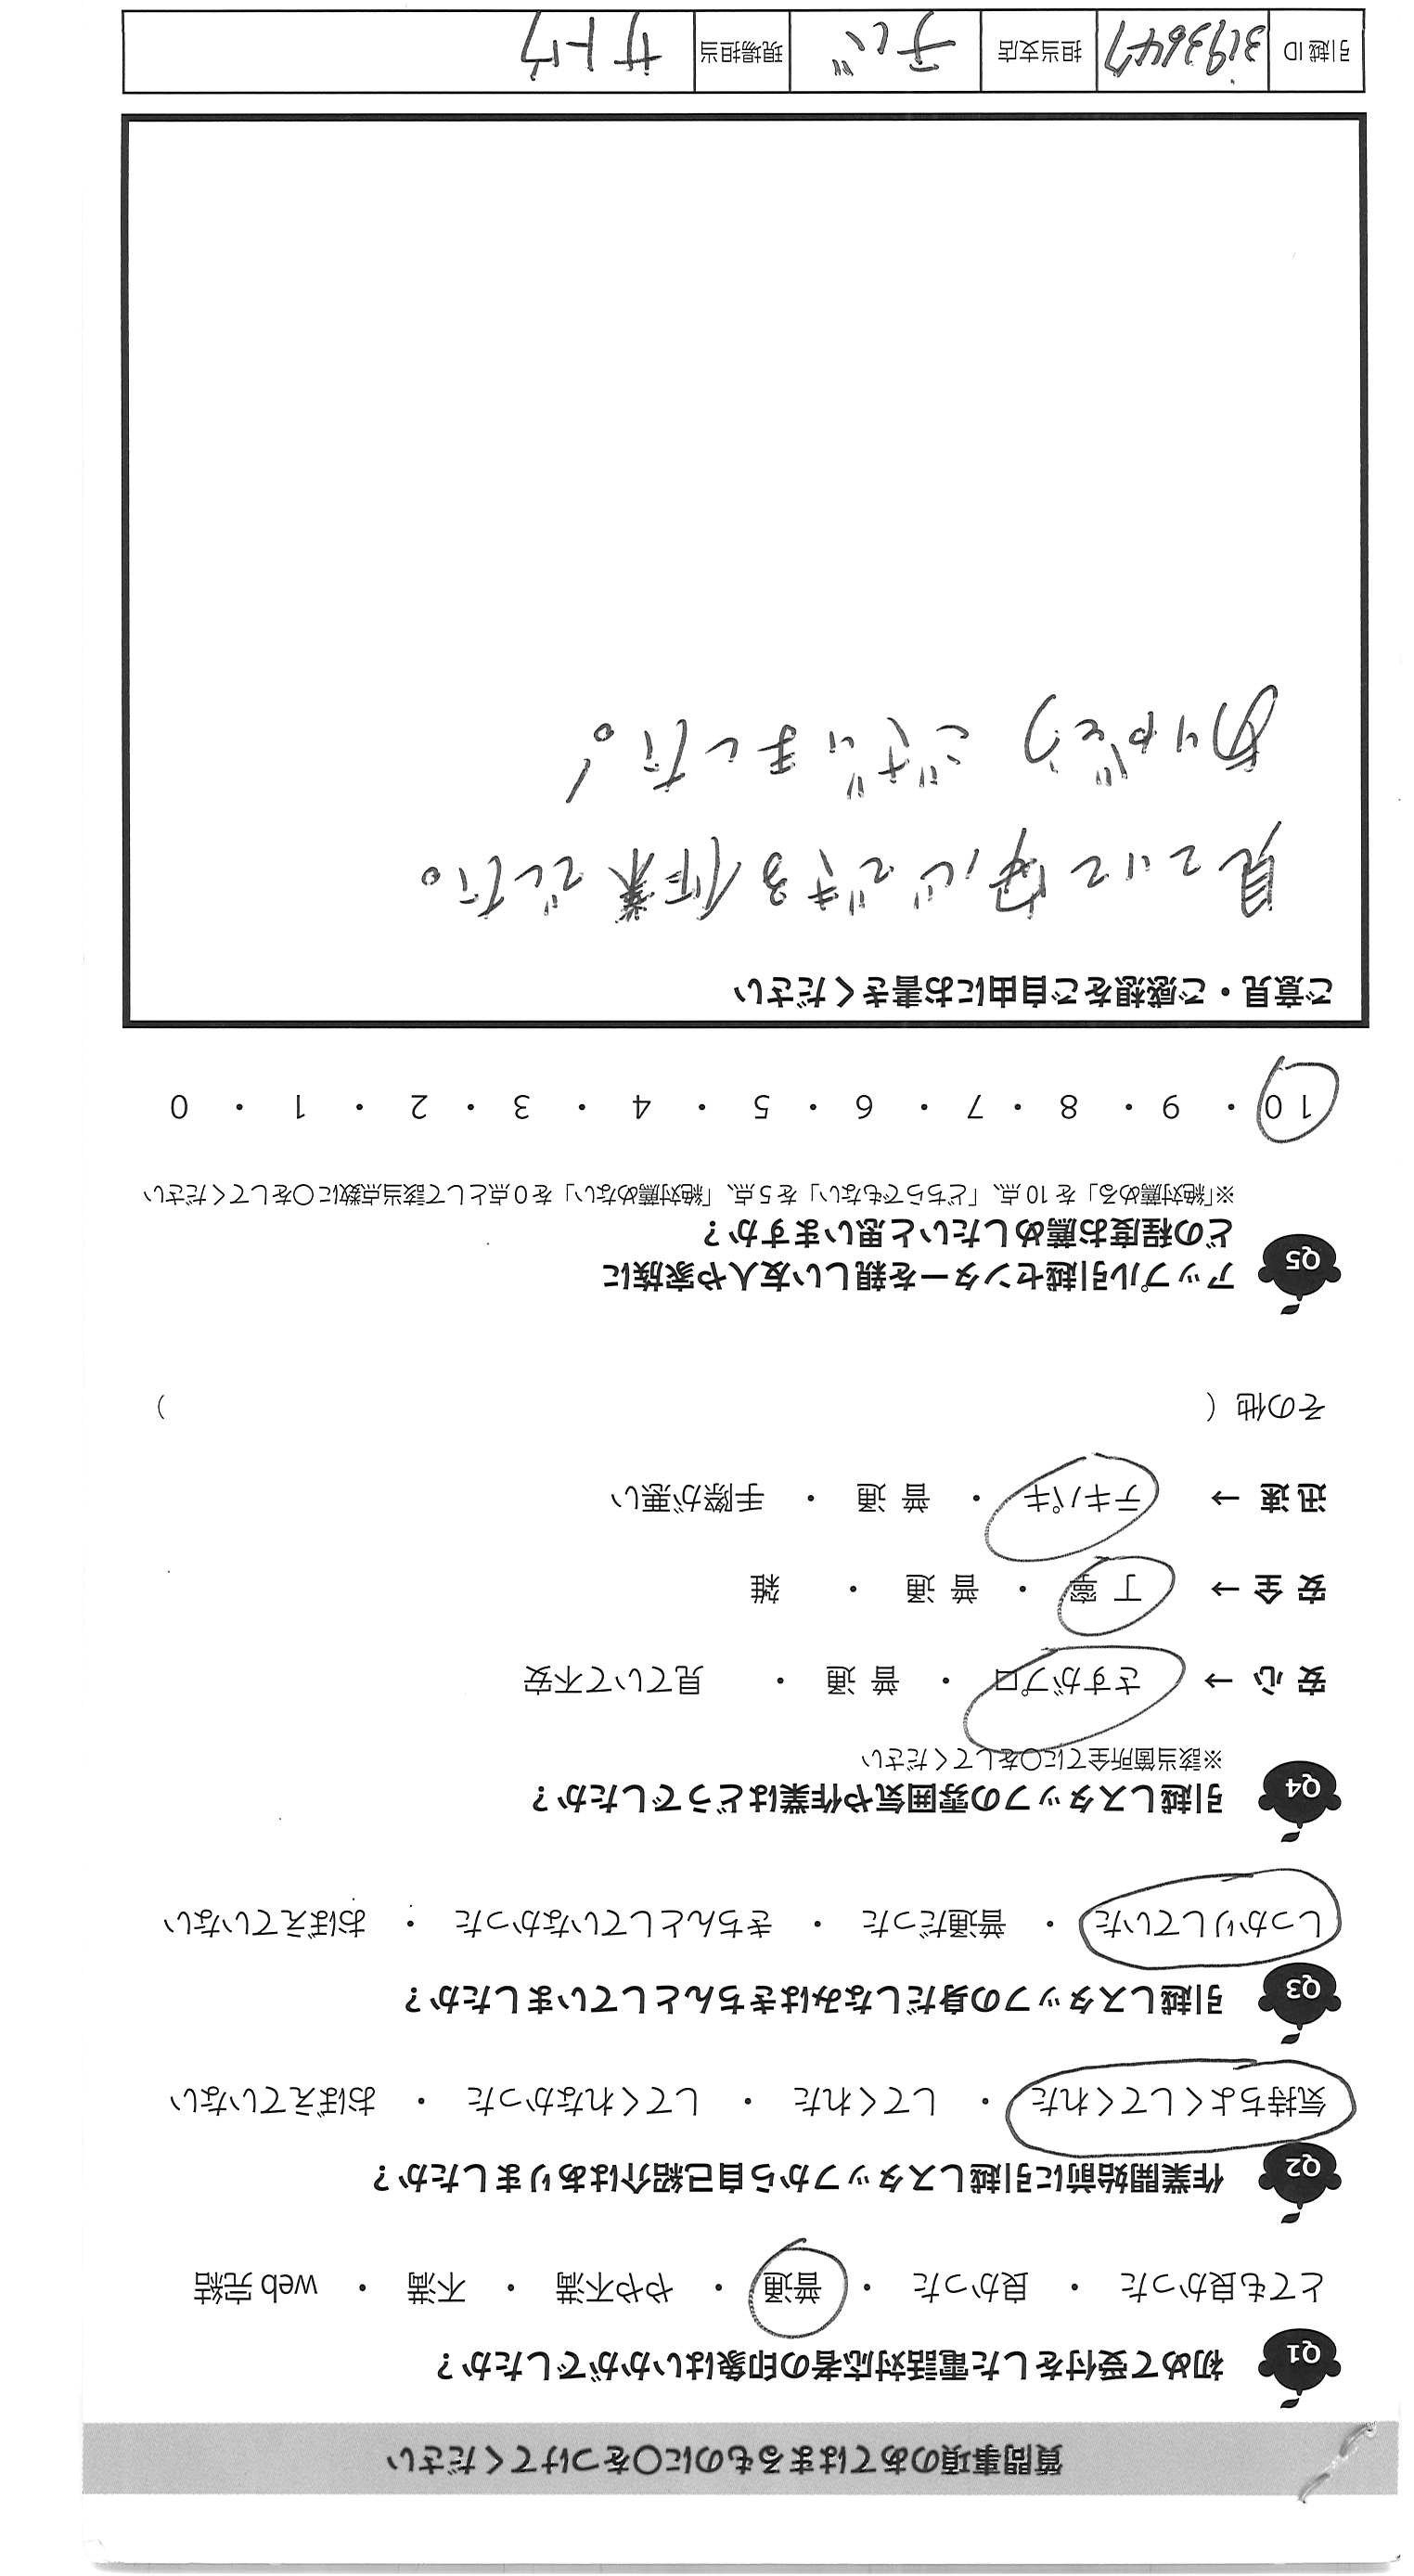 質問事項のあてはまるものに〇をつけてください
Q1 初めて受付をした電話対応者の印象はいかがでしたか？
とても良かった ・ 良かった ・ 普通 ・ やや不満 ・ 不満 ・ web 完結
Q2 作業開始前に引越しスタッフから自己紹介はありましたか？
気持ちよくしてくれた ・ してくれた ・ してくれなかった ・ おぼえていない
Q3 引越しスタッフの身だしなみはきちんとしていましたか？
しっかりしていた ・ 普通だった ・ きちんとしていなかった ・ おぼえていない
Q4 引越しスタッフの雰囲気や作業はどうでしたか？
※該当箇所全てに〇をしてください
安 心 → さすがプロ ・ 普 通 ・ 見ていて不安
安 全 → 丁 寧 ・ 普 通 ・ 雑
迅 速 → テキパキ ・ 普 通 ・ 手際が悪い
その他（ ）
Q5 アップル引越センターを親しい友人や家族に
どの程度お薦めしたいと思いますか？
※「絶対薦める」を 10 点、「どちらでもない」を 5 点、「絶対薦めない」を 0 点として該当点数に〇をしてください
10 ・ 9 ・ 8 ・ 7 ・ 6 ・ 5 ・ 4 ・ 3 ・ 2 ・ 1 ・ 0
ご意見・ご感想をご自由にお書きください
見ていて安心できる作業でした。
ありがとうございました！。
引越 ID 3193647 担当支店 チバ 現場担当 サトウ